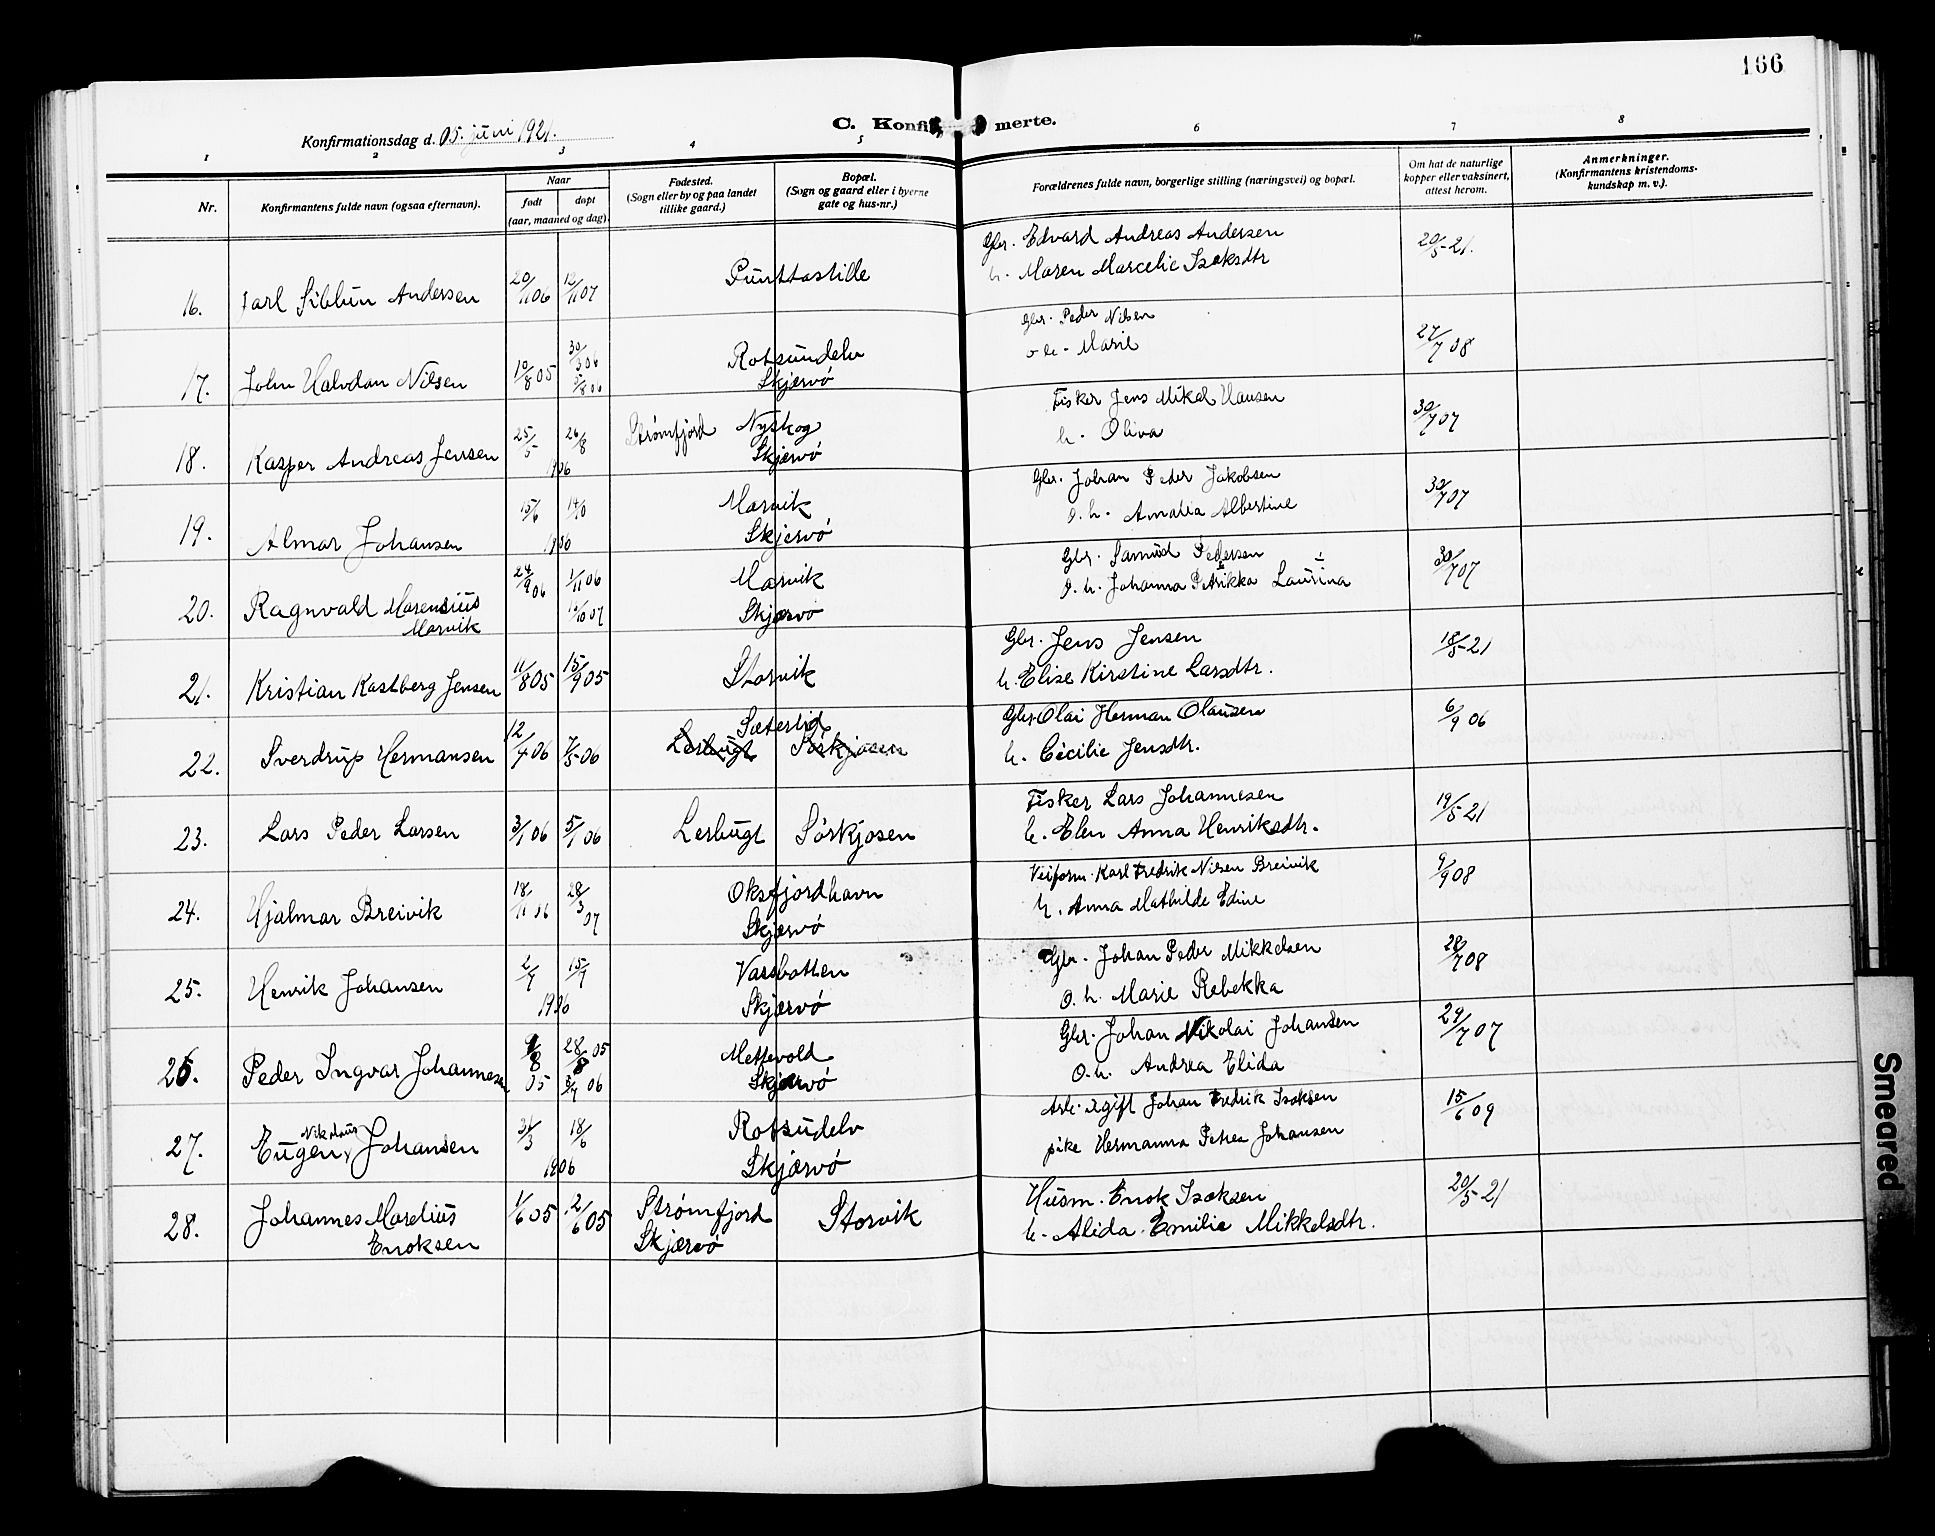 166
C. Konfirmerte.
Konfirmationsdag d. 05. juni 1921.
1 2 3 4 5 6 7 8
Nr.
Konfirmantens fulde navn (ogsaa efternavn).
Naar
født
døpt
(aar, maaned og dag).
Fødested.
(Sogn eller by og paa landet
tillike gaard.)
Bopæl.
(Sogn og gaard eller i byerne
gate og hus-nr.)
Forældrenes fulde navn, borgerlige stilling (næringsvei) og bopæl.
Om hat de naturlige
kopper eller vaksinert,
attest herom.
Anmerkninger.
(Konfirmantens kristendoms-
kundskap m. v.).
Gbr. Edvard Andreas Andersen
h. Maren Marcelie Isaksdtr
16. Jarl Andersen 20/11 06 12/11 07 20/5-21.
Gbr. Peder Nilsen
o. h. Marie
17. John Halvdan Nilsen 10/8 05 30/3 06 Rotsundelv 27/7 08
Skjærvö
Fisker Jens Mikal Hansen
h. Oliva
18. Kasper Andreas Jensen 25/5 26/8 1906 Strømfjord Nyskog 30/7 07
Skjærvö
Gbr. Johan Peder Jakobsen
o. h. Amalia Albertine
19. Almar Johansen 15/6 14/10 Marvik 30/7 07
Skjervö
Gbr. Samuel Pedersen
o. h. Johanna Petrikka Laurina
20. Ragnvald Marensius 24/9 06 1/11 06 Marvik 30/7 07
Marvik 10/10 07 Skjærvö
Gbr. Jens Jensen
h. Elise Kirstine Larsdtr.
21. Kristian Kastberg Jensen 11/8 05 15/9 05 Storvik 18/5-21
Gbr. Olai Herman Olausen
h. Cecilie Jensdtr.
Sæterlid
22. Sverdrup Hermansen 12/4 06 7/5-06 Lerbugt Sørkjosen 6/9 06
Fisker Lars Johannesen
h. Elen Anna Henriksdtr.
23. Lars Peder Larsen 3/1 06 5/1 06 Lerbugt Sörkjosen 19/5 21
Veiform. Karl Fredrik Nilsen Breivik
h. Anna Mathilde Edine
24. Hjalmar Breivik 18/11 06 28/3 07 Oksfjordhavn 9/9 08
Skjærvö
Gbr. Johan Peder Mikkelsen
o. h. Marie Rebekka
25. Henrik Johansen 2/7 15/7 Vassbotten 28/7 08
Skjærvö
Gbr. Johan Nikolai Johansen
o. h. Andrea Elida
26. Peder Ingvar Johannesen 05 28/8 05 06 Mettevold 29/7 07
Skjærvö
Arb. ugift Johan Fredrik Isaksen
pike Hermanna Petrea Johansen
Nikolaus
27. Eugen Johansen 31/3 18/6 1906 Rotsudelv 15/6 09
Skjærvö
Husm. Enok Isaksen
h. Alida Emilie Mikkelsdtr.
28. Johannes Marelius 1/6 05 2/6 05 Strømfjord Storvik 20/5 21
Enoksen Skjærvö
Smeared